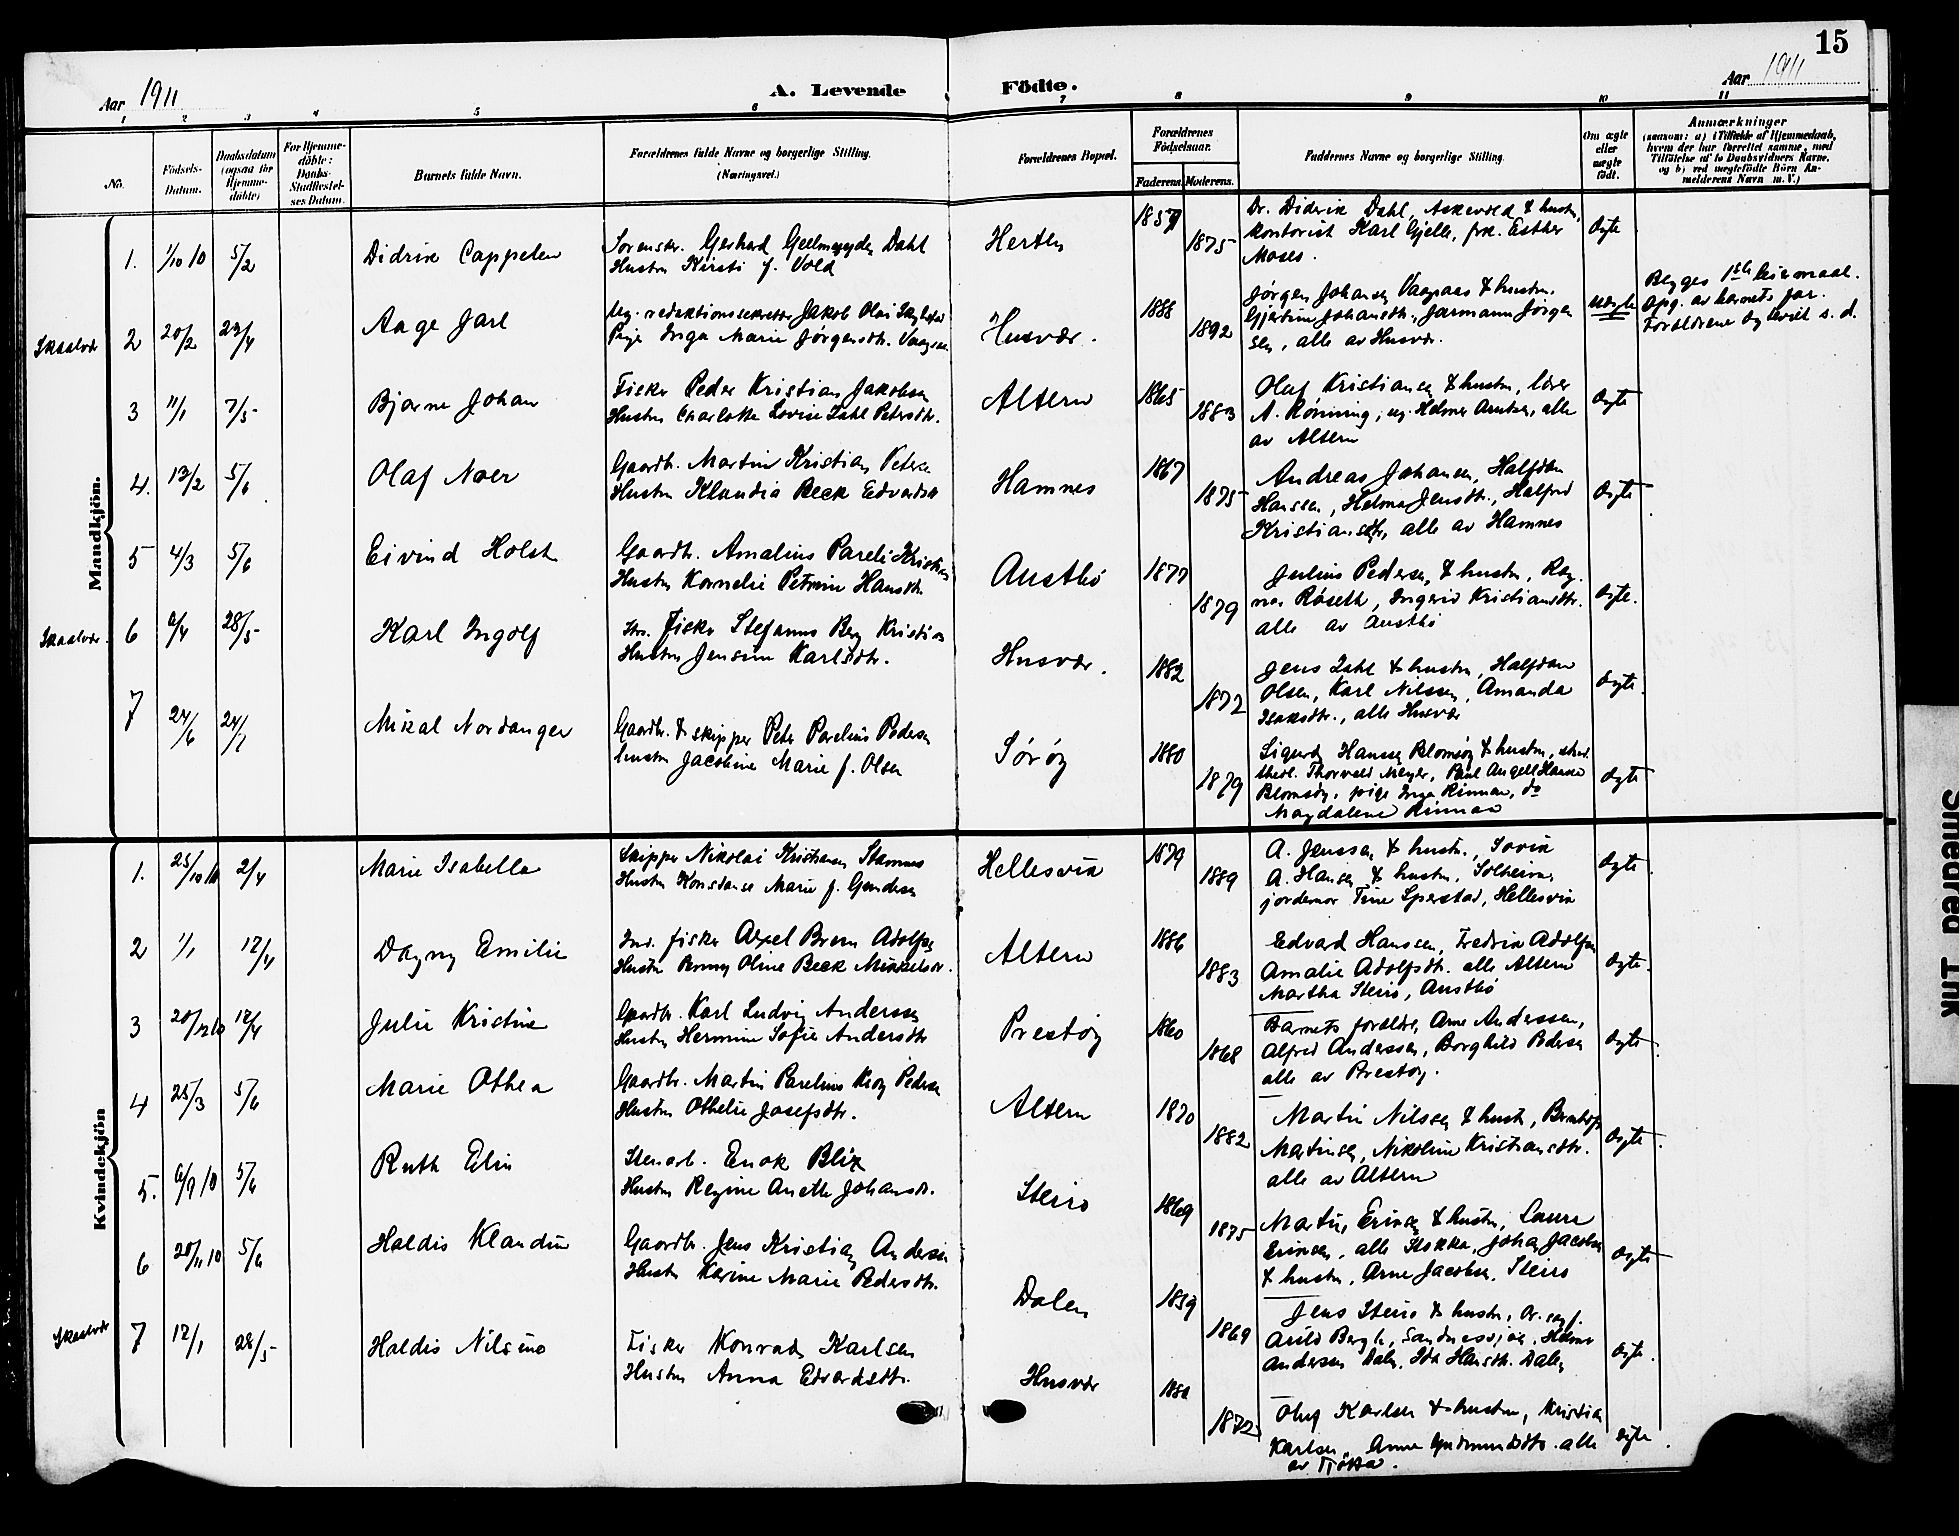 15
Aar 1911
A. Levende Födte.
Aar 1911
1 2 3 4 5 6 7 8 9 10 11
No.
Födsels-
Datum.
Daabsdatum
(ogsaa for
Hjemme-
döbte)
For Hjemme-
döbte:
Daabs-
Stadfæstel-
ses Datum.
Barnets fulde Navn.
Forældrenes fulde Navne og borgerlige Stilling.
(Næringsvei.)
Forældrenes Bopæl.
Forældrenes
Födselsaar.
Faderens. Moderens.
Faddernes Navne og borgerlige Stilling.
Om ægte
eller
uægte
födt.
Anmærkninger
(saasom: a) i Tilfælde af Hjemmedaab,
hvem der har forrettet samme, med
Tilföielse af to Daabsvidners Navne,
og b) ved uægtefödte Börn An-
melderens Navn m. V.)
Mandkjön.
1. 1/10 10 5/2 Didrik Cappelen
Sorenskr. Gerhard Dahl
Hustru Kirsti f. Vold
Herten 1875
Dr. Diderik Dahl, Askevold & hustru,
kontorist Karl Gjelle, frk. Esther
Moses.
Ægte
2 20/2 Aage Jarl
Ug. redaktionssekretær Jakob Olai
Pige Inga Marie Jørgensdtr.
Husvær. 1888 1892
Jørgen Johansen & hustru,
Johansdtr., Jarmann Jørgen
sen, alle av Husvær.
uægte
Begges 1ste leiermaal.
Opg. av barnets far.
3 11/1 7/5 Bjarne Johan
Fisker Peder Kristian Jakobsen
Hustru Charlotte Lovise Zahl Petersdtr.
Altern 1865 1883
Olaf Kristiansen & hustru, lærer
A. Rønning, ug. Helmer, alle
av Altern
Ægte
4. 13/2 5/6 Olaf Noer
Gaardbr. Martin Kristian Peters
Hustru Klaudia Beck
Hamnes 1867 1875
Andreas Johansen, Halfdan
Hansen, Helma Jensdtr., Halfrid
Kristiansdtr, alle av Hamnes
Ægte
5 4/3 5/6 Eivind Holst
Gaardbr. Amalius Pareli
Hustru Kornelie Petrine Hansdtr.
Austbø 1877 1879
Julius Pedersen & hustru, Rag
nar Røseth, Ingerid Kristiansdtr.
alle av Austbø
Ægte.
6 28/5 Karl Ingolf
Fisker Stefanus Berg
Hustru Jensine Karlsdtr.
Husvær. 1882 1872
Jens Zahl & hustru, Halfdan
Olsen, Karl Nilssen, Amanda
Isaksdtr., alle Husvær
Ægte.
7 24/6 Mikal Nordanger
Gaardbr. & skipper Peter Parelius Pedersen
hustru Jacobine Marie f. Olsen
Sørøy 1880 1879
Sigurd Hanssen Blomsøy & hustru, stud.
theol. Thorvald Meyer, Paul Angell Hansen
Blomsøy, pige Inga Rinnan, do
Magdalene Rinnan
Ægte
Kvindekjön
1. 25/10 10 2/4 Marie Isabella
Skipper Nikolai Kristiansen Stamnes
Hustru Konstanse Marie f. Gundersen
Hellesvik 1879 1889
A. Jenssen & hustr., Sovik
A. Hansen & hustru, Solheim,
jordemor Tine Sperstad, Hellesvik
Ægte
2 1/1 17/4 Dagny Emilie
Ind. fisker Axel Brem Adolfsen
Hustru Oline Beck
Altern 1886 1883
Edvard Hanssen, Fredrik Adolfsen
Amalie Adolfsdtr. alle Altern
Martha Steiro, Austbø
Ægte.
3 20/12 10 17/4 Julie Kristine
Gaardbr. Karl Ludvig Anderssen
Hustru Hermine Sofie Andersdtr
Prestøy 1860 1868
Barnets forældre, Arne Anderssen,
Alfred Anderssen, Borghild Pedersen
alle av Prestøy.
Ægte.
4 25/3 5/6 Marie Othea
Gaardbr. Martin Parelius Pedersen
Hustru Othelie Josefsdtr.
Altern 1870 1882
Martin Nilssen & hustr.,
Martinsen, Nikoline Kristiansdtr.
alle av Altern
Ægte.
5. 6/9 10 5/6 Ruth Elin
Stenarb. Enok Blix
Hustru Regine Anette Johansdtr.
Steiro 1869 1875
Martin Eriksen & hustru, Laura
Eriksen, alle Stokka, Johan Jacobsen
& hustru, Arne Jacobsen, Steiro
Ægte
6 20/11 10 5/6 Haldis Klaudine
Gaardbr. Jens Kristian Andersen
Hustru Karine Marie Pedersdtr.
Dalen 1859 1869
Jens Steiro & hustru,
Arild Bergh, Sandnessjøen, Helmer
Andersen Dalen, Ida Hansdtr. Dalen
Ægte.
7 17/1 28/5 Haldis Nilsine
Fisker Konrad Karlsen
Hustru Anna Edvardsdtr.
Husvær 1872
Oluf Karlsen & hustru, Kristian
Karlsen, Anna alle
av Tjøtta.
Ægte.
Smeared Ink